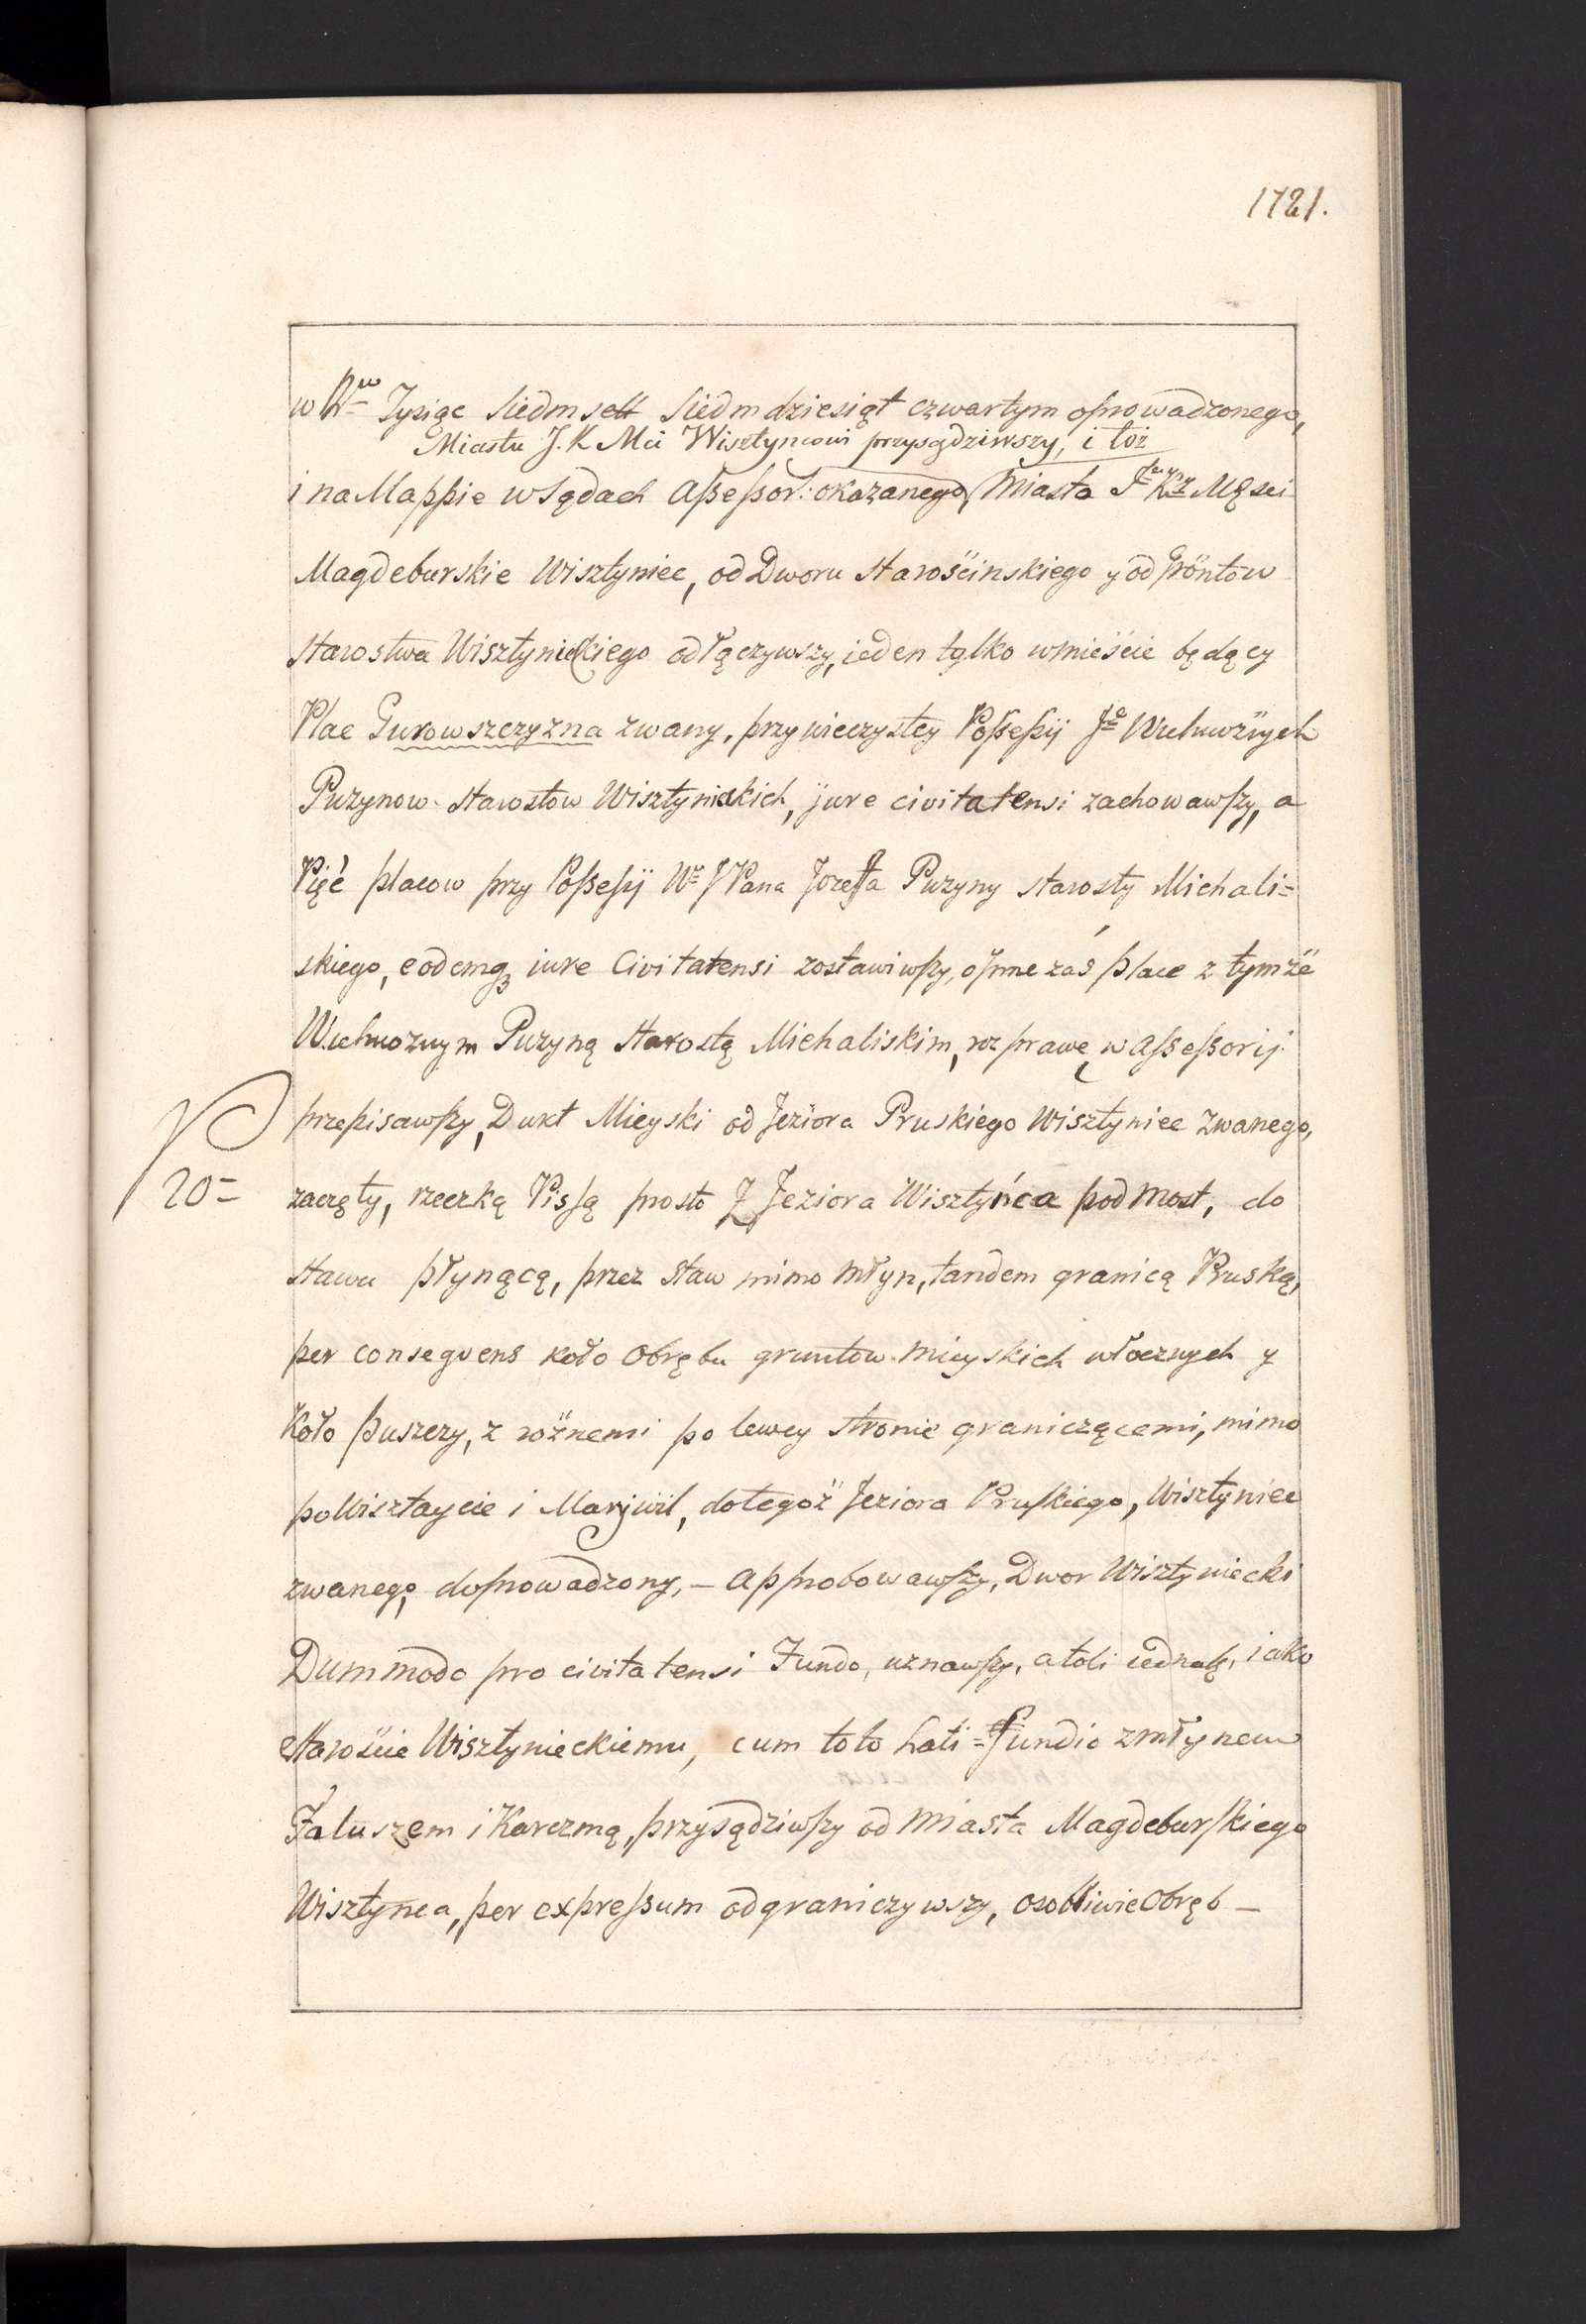 1721.
w Rw Tysiąc Siedmsett Siedmdziesiąt czwartym oprowadzonego,
Miastu J. K Mci Wisztyncowi przysądziwszy, i toż
i na Mappie w Sądach Assessor: okazanego, Miasta Jw Kr Mości
Magdeburskie Wisztyniec, od Dworu Starościnskiego y od Gröntow
Starostwa Wisztynieckiego odłączywszy, ieden tylko w mieście będący
Plac Gurowszczyzna zwany, przy wieczystey Possessyi Je Wielmożnych
Puzynow Starostow Wisztynieckich, jure civitatensi zachowawszy, a
Pięć placow przy Possessyi We J Pana Jozeffa Puzyny Starosty Michali=
skiego, eodemq3 iure Civitatensi zostawiwszy, o inne zaś place z tymże
Wielmoznym Puzyną Starostą Michaliskim, rozprawę w Assessorij
przepisawszy, Dukt Mieyski od Jeziora Pruskiego Wisztyniec zwanego,
20=
zaczęty, rzeczką Pissą prosto Z Jeziora Wisztyńca pod Most, do
stawu płynącą, przez Staw mimo Młyn, tandem granicą Pruską,
per conseqvens koło Obrębu gruntow Mieyskich włocznych y
Koło Puszczy, z rożnemi po lewey stronie graniczącemi, mimo
powisztaycie i Maryiwil, do tegoż Jeziora Pruskiego, Wisztyniec
zwanego, doprowadzony, – Approbowawszy, Dwor Wisztyniecki
Dummodo pro civitatensi Fundo, uznawszy, atoli iednak, iako
Staroście Wisztynieckiemu, cum toto Lati=fundio z młynem
Faluszem i Karczmą, przysądziwszy od Miasta Magdeburskiego
Wisztynca, per expressum odgraniczywszy, osobliwie Obręb –